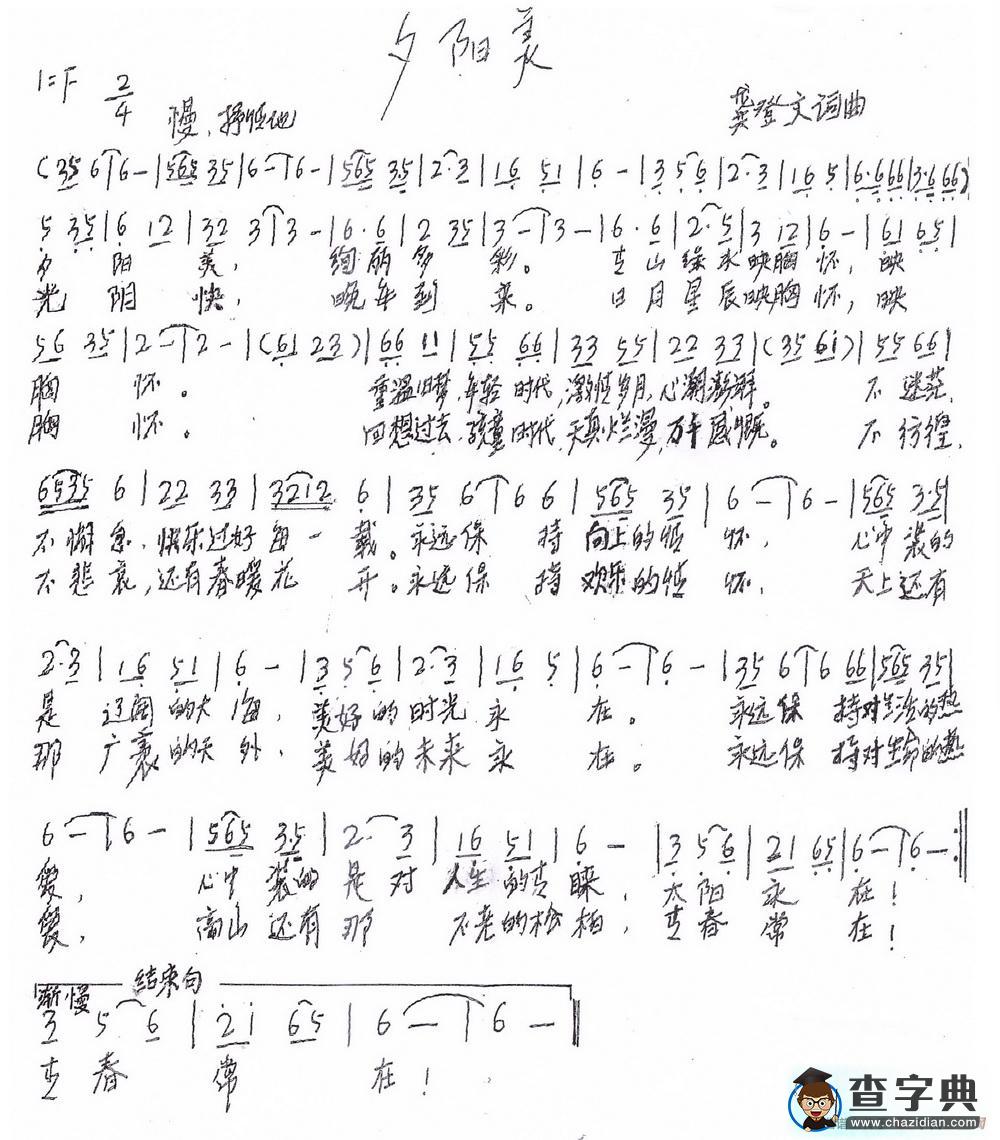 夕阳美
1=F 2/4 慢、抒情地
龚登文词曲
(35 6|6-|565 35|6-|6-|565 3·5|2·3|16 51|6-|3 5 6|2·3|16 5|6·666|3·666)
5 35|6 12|32 3|3-|6·6|2 35|3-|3-|6·6|2·5|3 12|6-|61 65|
夕 阳 美， 绚丽多 彩。 青山绿水映胸怀，映
光 阴 快， 晚年到 来。 日月星辰映胸怀，映
56 35|2-|2-|(61 23)|66 11|55 66|33 55|22 33|(35 61)|55 66|
胸 怀。 重温旧梦，年轻时代，激情岁月，心潮澎湃。 不迷茫，
胸 怀。 回想过去，孩童时代，天真烂漫，万千感慨。 不彷徨，
6535 6|22 33|3212 6|35 6|6 6|565 35|6-|6-|565 3·5|
不懈怠，快乐过好每一 载。永远保 持 向上的情 怀， 心中装的
不悲哀，还有春暖花 开。永远保 持 欢乐的情 怀， 天上还有
2·3|16 51|6-|3 5 6|2·3|16 5|6-|6-|35 6|6 66|565 35|
是 辽阔的大海，美好的时光永 在。 永远保 持对生活的热
那 广袤的天外，美好的未来永 在。 永远保 持对生命的热
6-|6-|565 3·5|2· 3|16 51|6-|3 5 6|21 65|6-|6-:||
爱， 心中装的是对人生的青睐，太阳永 在！
爱， 高山还有那 不老的松柏，青春常 在！
渐慢 结束句
3 5 6|21 65|6-|6-||
青春 常 在！
查字典
www.chazidian.com